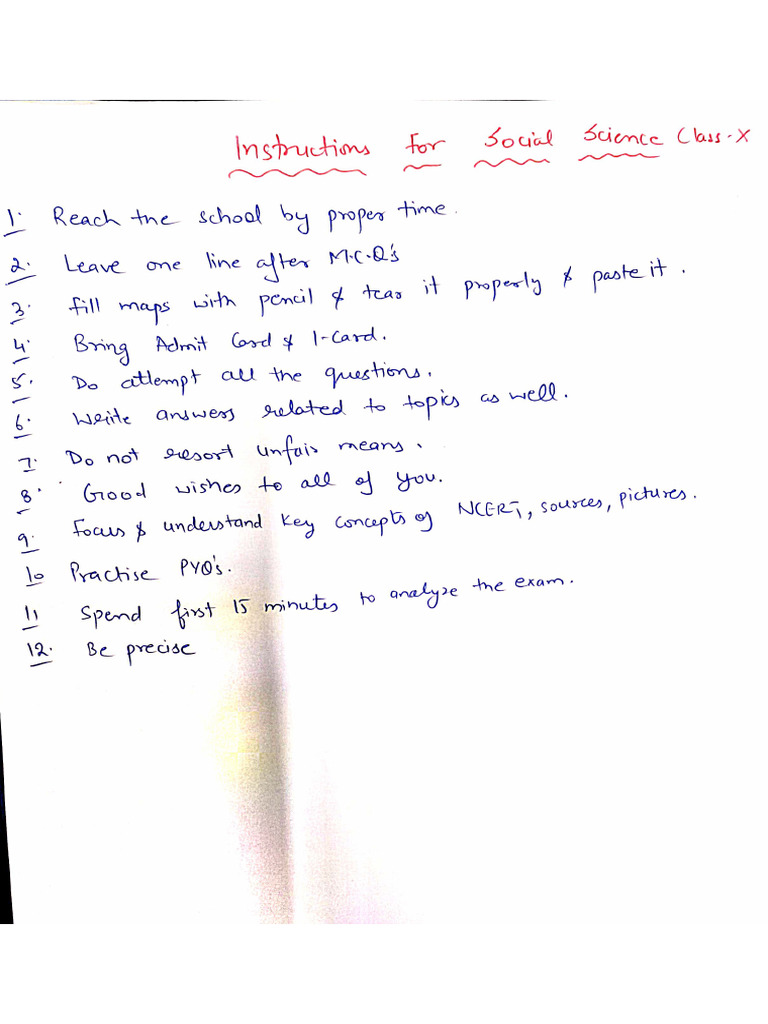 Instructions for Social Science Class-X
1. Reach the school by proper time.
2. Leave one line after M.C.Q's
3. fill maps with pencil & tear it properly & paste it.
4. Bring Admit Card & I-Card.
5. Do attempt all the questions.
6. Write answers related to topics as well.
7. Do not resort unfair means.
8. Good wishes to all of you.
9. Focus & understand key concepts of NCERT, sources, pictures.
10 Practise PYQ's.
11 Spend first 15 minutes to analyze the exam.
12. Be precise